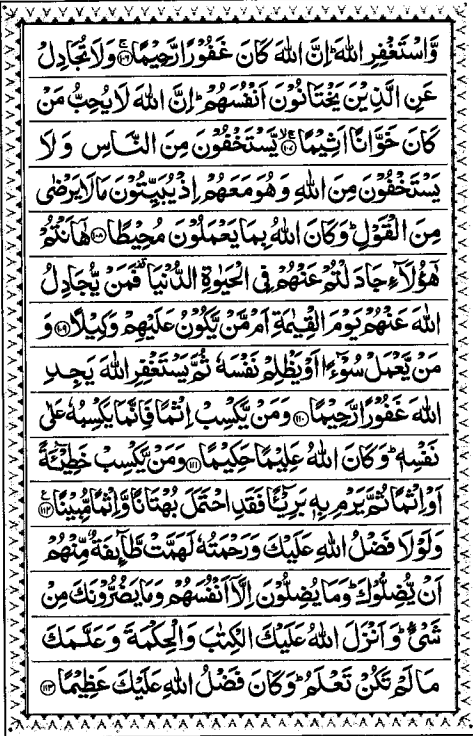 وَّاسْتَغْفِرِ اللهَ ؕ اِنَّ اللهَ كَانَ غَفُوْرًا رَّحِيْمًا ﴿۱۰۶﴾ وَلَا تُجَادِلْ
عَنِ الَّذِيْنَ يَخْتَانُوْنَ اَنْفُسَهُمْ ؕ اِنَّ اللهَ لَا يُحِبُّ مَنْ
كَانَ خَوَّانًا اَثِيْمًا ﴿۱۰۷﴾ يَّسْتَخْفُوْنَ مِنَ النَّاسِ وَ لَا
يَسْتَخْفُوْنَ مِنَ اللهِ وَ هُوَ مَعَهُمْ اِذْ يُبَيِّتُوْنَ مَا لَا يَرْضٰى
مِنَ الْقَوْلِ ؕ وَ كَانَ اللهُ بِمَا يَعْمَلُوْنَ مُحِيْطًا ﴿۱۰۸﴾ هٰۤاَنْتُمْ
هٰۤؤُلَآءِ جَادَلْتُمْ عَنْهُمْ فِي الْحَيٰوةِ الدُّنْيَا ۫ فَمَنْ يُّجَادِلُ
اللهَ عَنْهُمْ يَوْمَ الْقِيٰمَةِ اَمْ مَّنْ يَّكُوْنُ عَلَيْهِمْ وَكِيْلًا ﴿۱۰۹﴾ وَ
مَنْ يَّعْمَلْ سُوْٓءًا اَوْ يَظْلِمْ نَفْسَهٗ ثُمَّ يَسْتَغْفِرِ اللهَ يَجِدِ
اللهَ غَفُوْرًا رَّحِيْمًا ﴿۱۱۰﴾ وَمَنْ يَّكْسِبْ اِثْمًا فَاِنَّمَا يَكْسِبُهٗ عَلٰى
نَفْسِهٖ ؕ وَ كَانَ اللهُ عَلِيْمًا حَكِيْمًا ﴿۱۱۱﴾ وَمَنْ يَّكْسِبْ خَطِيْٓئَةً
اَوْ اِثْمًا ثُمَّ يَرْمِ بِهٖ بَرِيْٓئًا فَقَدِ احْتَمَلَ بُهْتَانًا وَّ اِثْمًا مُّبِيْنًا ﴿۱۱۲﴾ ع
وَلَوْ لَا فَضْلُ اللهِ عَلَيْكَ وَرَحْمَتُهٗ لَهَمَّتْ طَّآئِفَةٌ مِّنْهُمْ
اَنْ يُّضِلُّوْكَ ؕ وَمَا يُضِلُّوْنَ اِلَّاۤ اَنْفُسَهُمْ وَمَا يَضُرُّوْنَكَ مِنْ
شَيْءٍ ؕ وَ اَنْزَلَ اللهُ عَلَيْكَ الْكِتٰبَ وَالْحِكْمَةَ وَ عَلَّمَكَ
مَا لَمْ تَكُنْ تَعْلَمُ ؕ وَكَانَ فَضْلُ اللهِ عَلَيْكَ عَظِيْمًا ﴿۱۱۳﴾